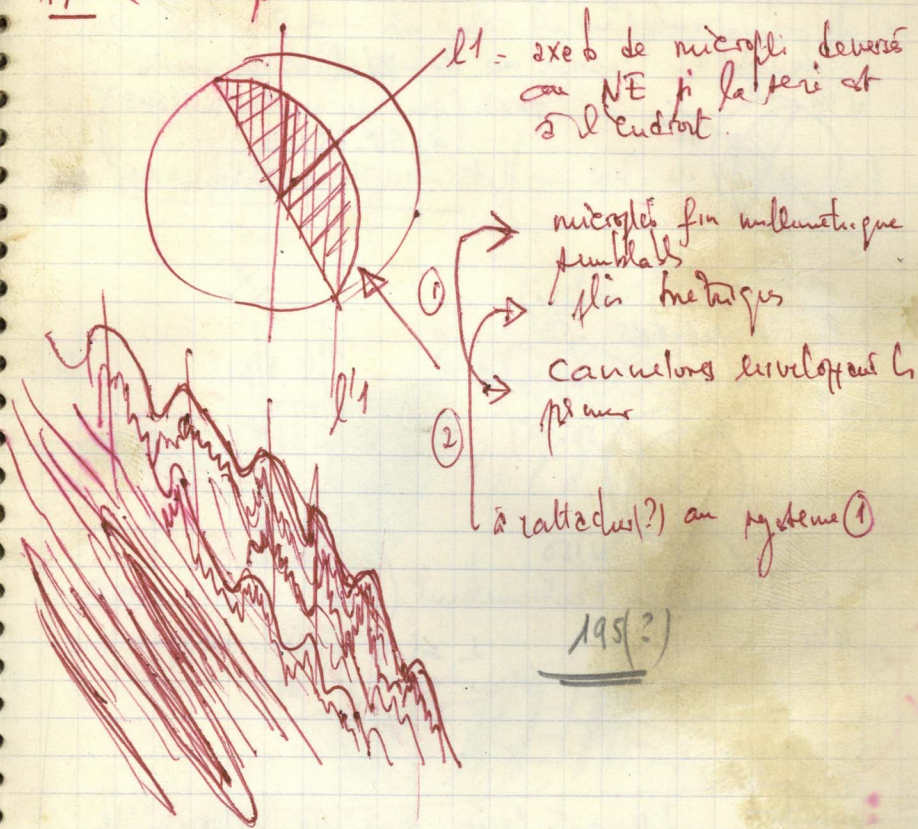 l1 = axe b de micropli deversé
au NE si la serie est
à l'endroit.
microplis fin millimétrique
semblables
plis métriques
①
cannelures enveloppant les
premier
l'1
②
à rattacher(?) au systeme ①
195(?)